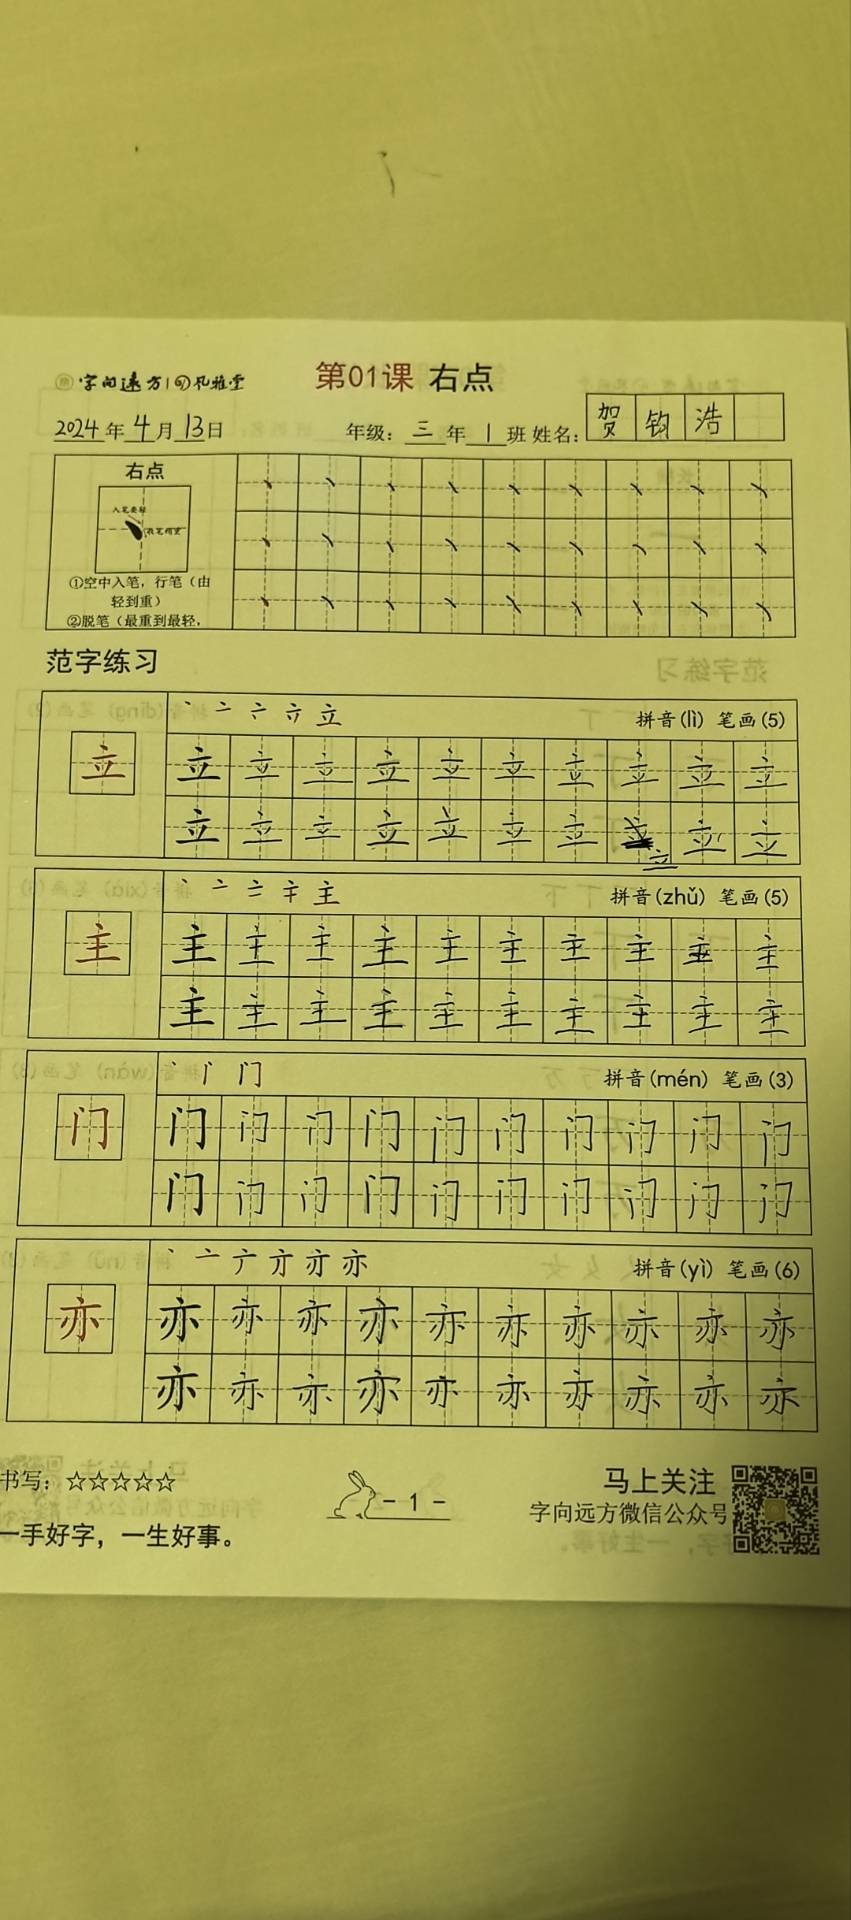 字向远方|风雅堂
第01课 右点
2024年4月13日 年级：三年1班 姓名：贺钧浩
右点
入笔要轻
①空中入笔，行笔（由
轻到重）
②脱笔（最重到最轻，
范字练习
丶 亠 立 拼音(lì) 笔画(5)
立 立 立 立 立 立 立 立 立 立 立
立 立 立 立 立 立 立 立 立 立
立
丶 亠 主 拼音(zhǔ) 笔画(5)
主 主 主 主 主 主 主 主 主 主 主
主 主 主 主 主 主 主 主 主 主
丶 门 拼音(mén) 笔画(3)
门 门 门 门 门 门 门 门 门 门 门
门 门 门 门 门 门 门 门 门 门
丶 亠 亦 拼音(yì) 笔画(6)
亦 亦 亦 亦 亦 亦 亦 亦 亦 亦 亦
亦 亦 亦 亦 亦 亦 亦 亦 亦 亦
书写：☆☆☆☆☆
一手好字，一生好事。
- 1 -
马上关注
字向远方微信公众号